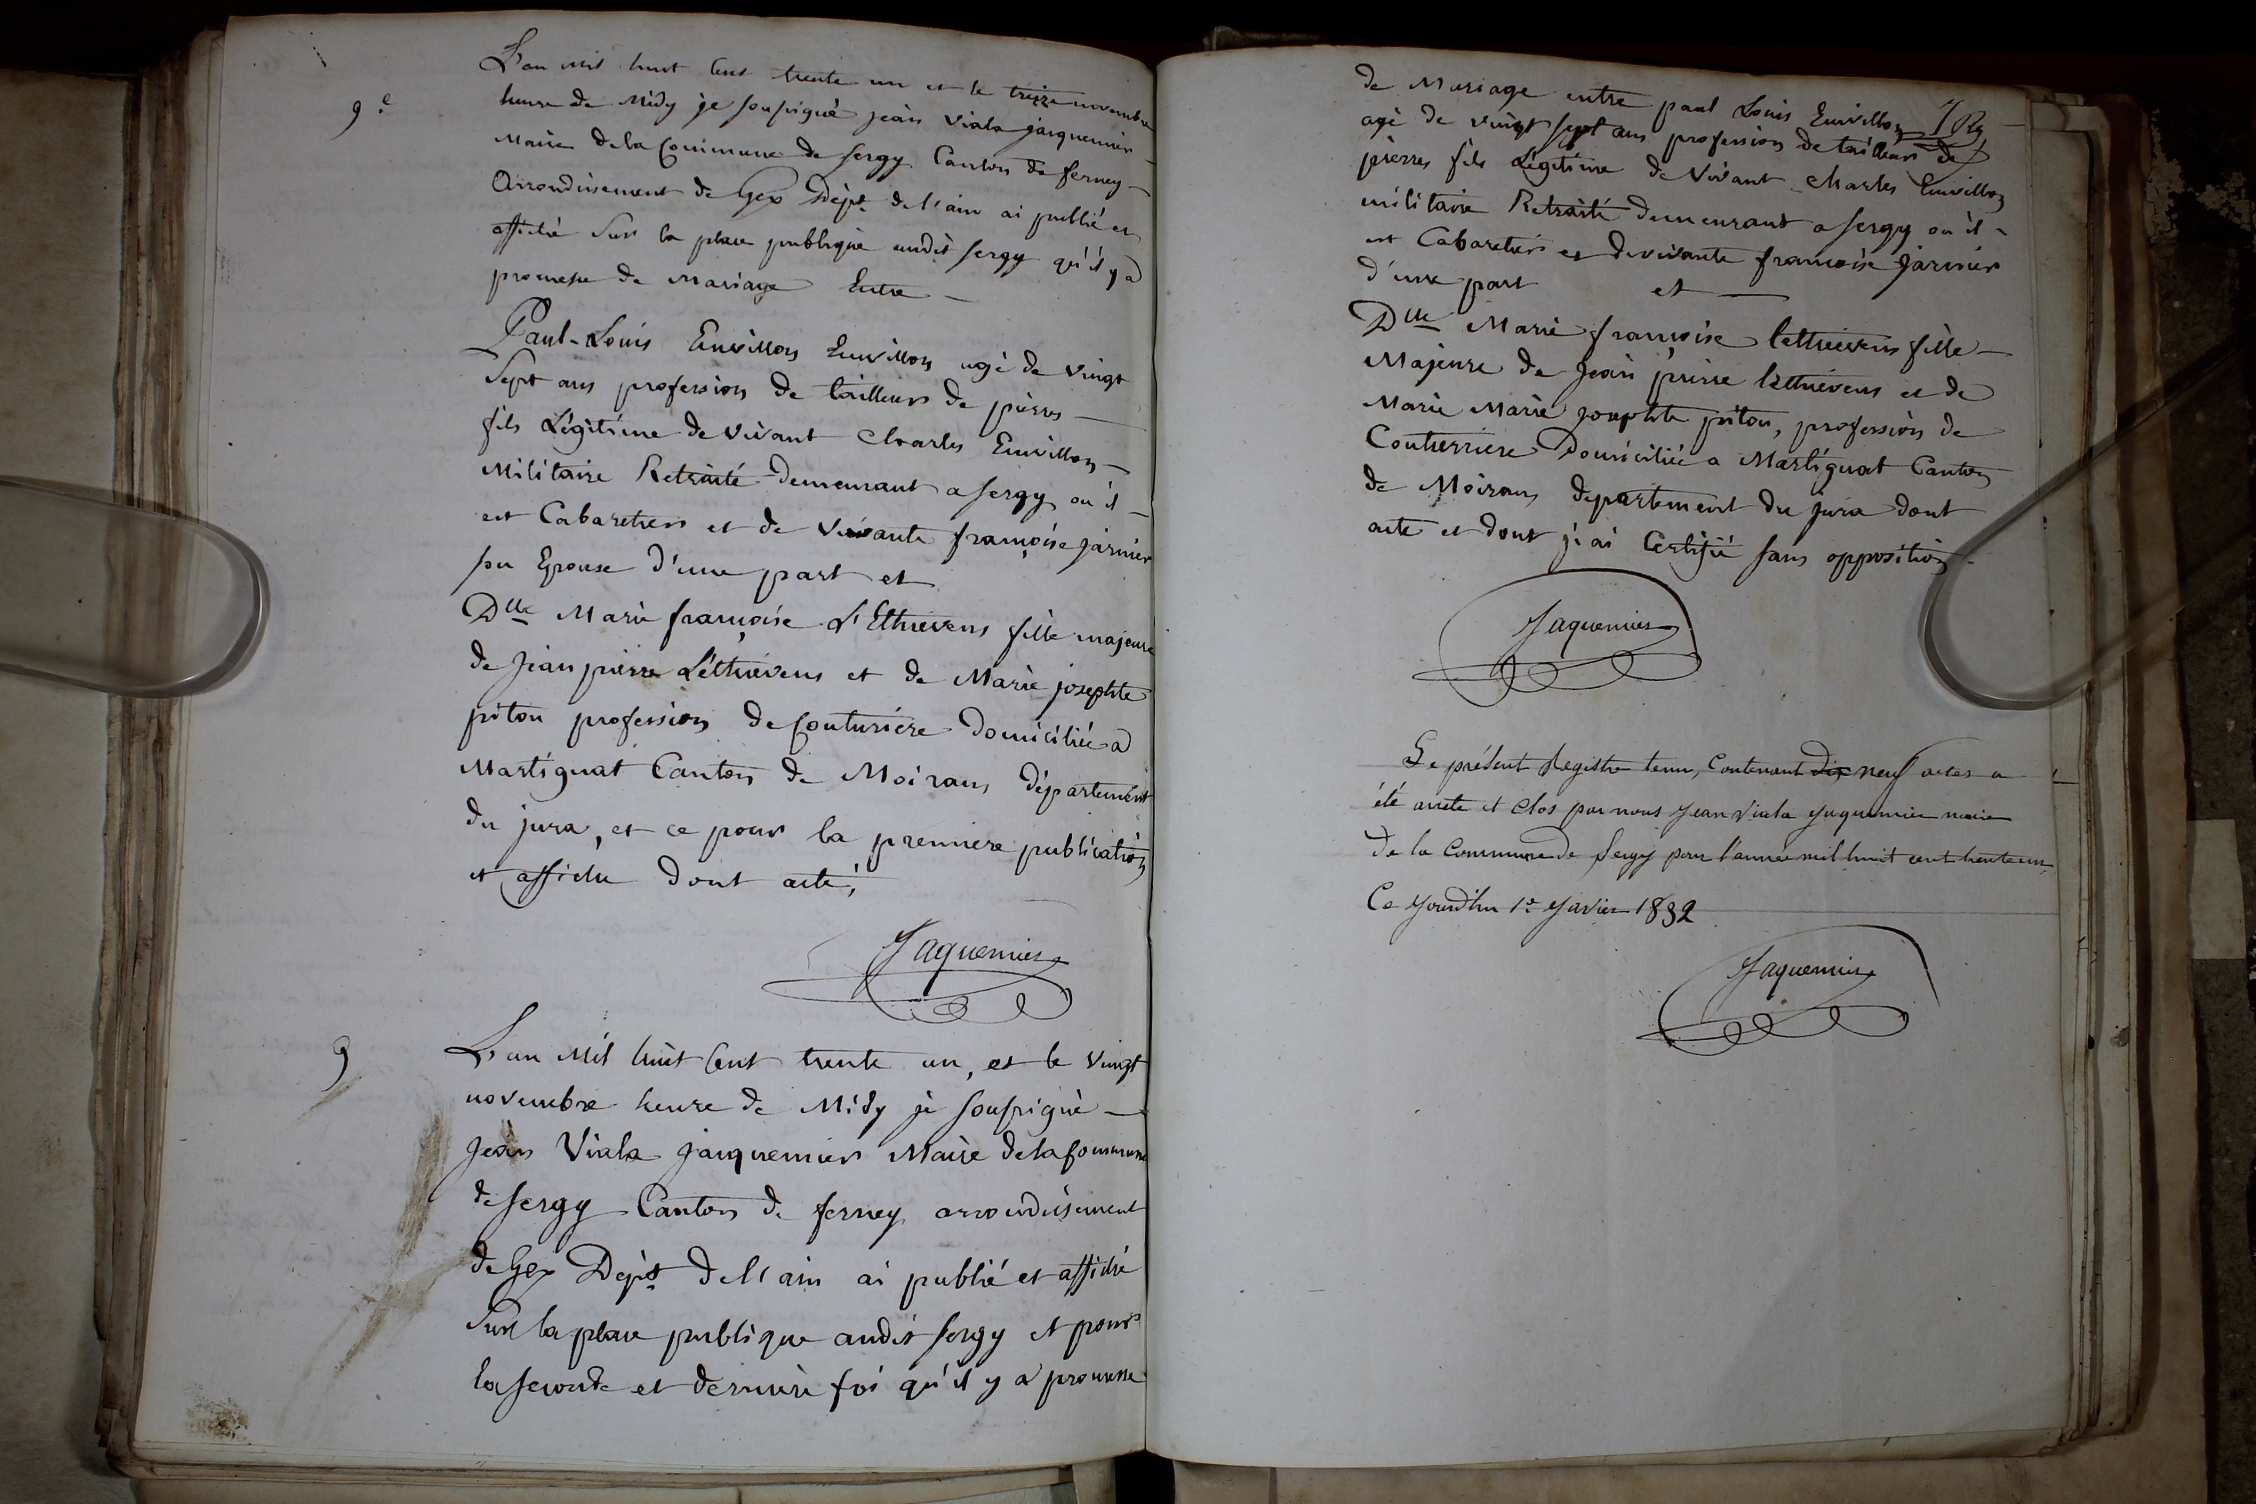 9e
L'an mil huit Cent trente un et le treize novembre
heure de Midy je soussigné jean Viala jaiquemier
Maire de la Commune de sergy Canton de ferney
Arrondissement de Gex Dépt. de l'ain ai publié et
affiché Sur la place publique audit sergy qu'il y a
promesse de Mariage Entre
Paul-Louis Emvillon Emvillon agé de vingt
Sept ans profession de tailleur de pierres
fils Légitime de vivant Charles Emvillon
Militaire Retraité demeurant a sergy ou il
est Cabaretier et de Vivante françoise jarnier
son Epouse d'une part et
Dlle Marie françoise L'Ethievens fille majeure
de Jean pierre Léthiévens et de Marie josephte
piton profession de Couturière domiciliée a
Martignat Canton de Moirans département
du jura, et ce pour la premiere publication
et affiche dont acte;
Jaquemier
9
L'an Mil huit Cent trente un, et le vingt
novembre heure de Midy je soussigné
Jean Viala jaiquemier Maire de la Commune
de sergy Canton de ferney arrondissement
de Gex Dépt de l'ain ai publié et affiché
Sur la place publique audit sergy et pour
la seconde et derniere foi qu'il y a promesse
de Mariage entre paul Louis Emvillon
agé de vingt sept ans profession de tailleur de
pierres fils Légitime de Vivant Charles Emvillon
militaire Retraité demeurant a sergy ou il
est Cabaretier et de vivante françoise jarnier
d'une part et
Dlle Marie françoise lethievens fille
Majeure de Jean pierre léthiévens et de
Marie Marie josephte piton, profession de
Couterriere Domiciliée a Martignat Canton
de Moirans departement du jura dont
acte et dont j'ai Certifié sans opposition
Jaquemier
Le présent Registre tenu, Contenant dix neuf actes a
été arrete et clos par nous Jean Viala Jaquemier maire
de la Commune de Sergy pour l'année mil huit cent trente un
Ce jourdhui 1er Javier 1832
Jaquemier